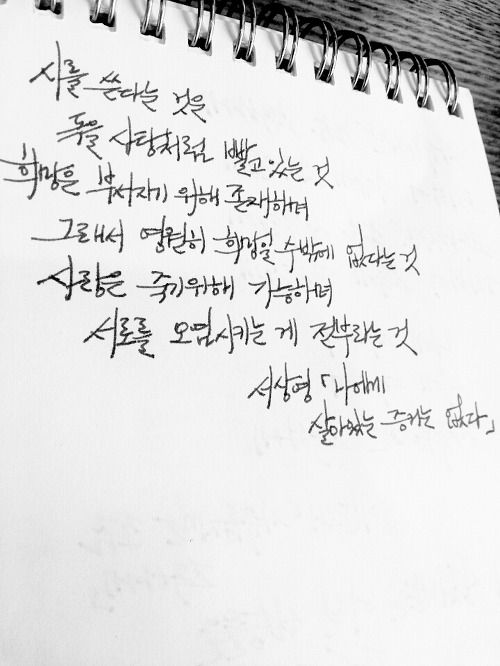 시를 쓴다는 것은
독을 사탕처럼 빨고있는 것
희망은 부서지기 위해 존재하며
그래서 영원히 희망일 수밖에 없다는 것
사랑은 죽기위해 가능하며
서로를 오염시키는 게 전부라는 것
서상영 「나에게
살아있는 증거는 없다」